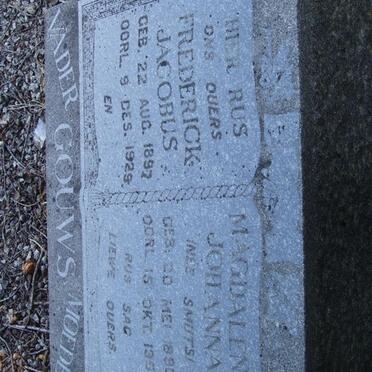 HIER RUS
ONS OUERS
FREDERICK
JACOBUS
GEB. 22 AUG. 1897
OORL. 9 DES. 1929
EN
MAGDALEN
JOHANNA
(NEE SMUTS)
GEB. 20 MEI
OORL. 15 OKT.
RUS SAG
LIEWE OUERS
VADER GOUWS MOED